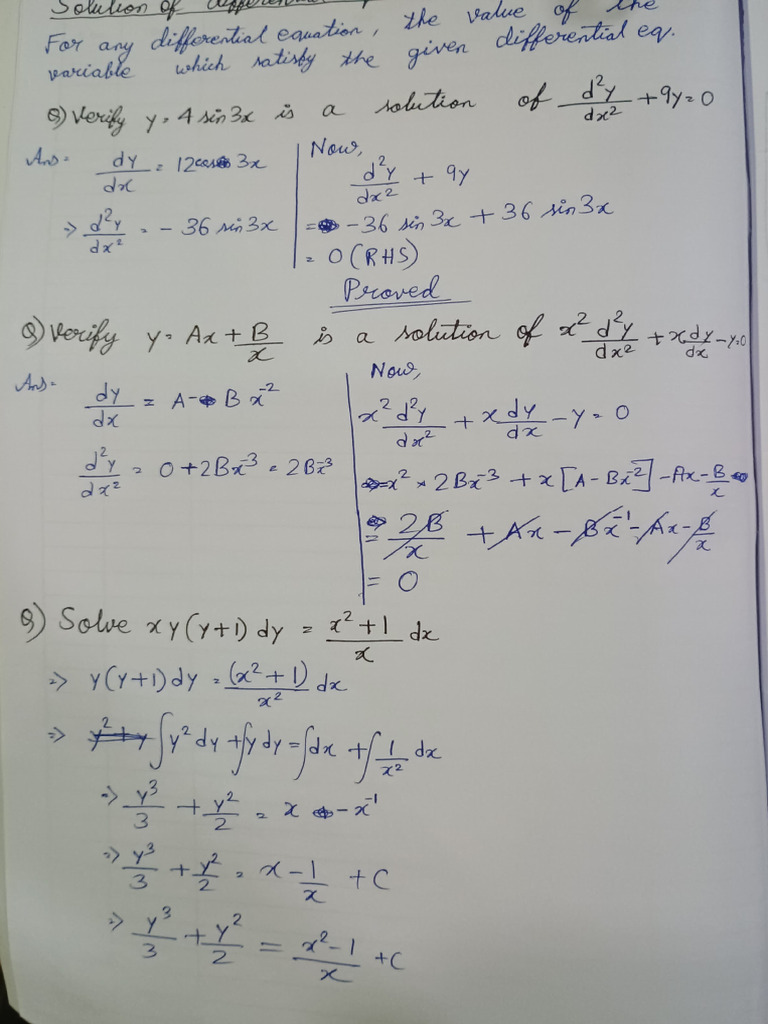 Solution of differential
For any differential equation, the value of the
variable which satisfy the given differential eq.
Q) Verify y = 4 sin3x is a solution of d²y/dx² + 9y = 0
Ans = dy/dx = 12cos 3x
⇒ d²y/dx² = - 36 sin3x
Now,
d²y/dx² + 9y
= -36 sin3x + 36 sin3x
= 0 (RHS)
Proved
Q) Verify y = Ax + B/x is a solution of x² d²y/dx² + x dy/dx - y = 0
Ans = dy/dx = A - B x⁻²
d²y/dx² = 0 + 2Bx⁻³ = 2Bx⁻³
Now,
x² d²y/dx² + x dy/dx - y = 0
= x² × 2Bx⁻³ + x [A - Bx⁻²] - Ax - B/x
= 2B/x + Ax - Bx⁻¹ - Ax - B/x
= 0
Q) Solve xy(y+1) dy = x²+1/x dx
⇒ y(y+1)dy = (x²+1)/x² dx
⇒ y²+y ∫y² dy + ∫y dy = ∫dx + ∫1/x² dx
⇒ y³/3 + y²/2 = x - x⁻¹
⇒ y³/3 + y²/2 = x - 1/x + C
⇒ y³/3 + y²/2 = x²-1/x + C